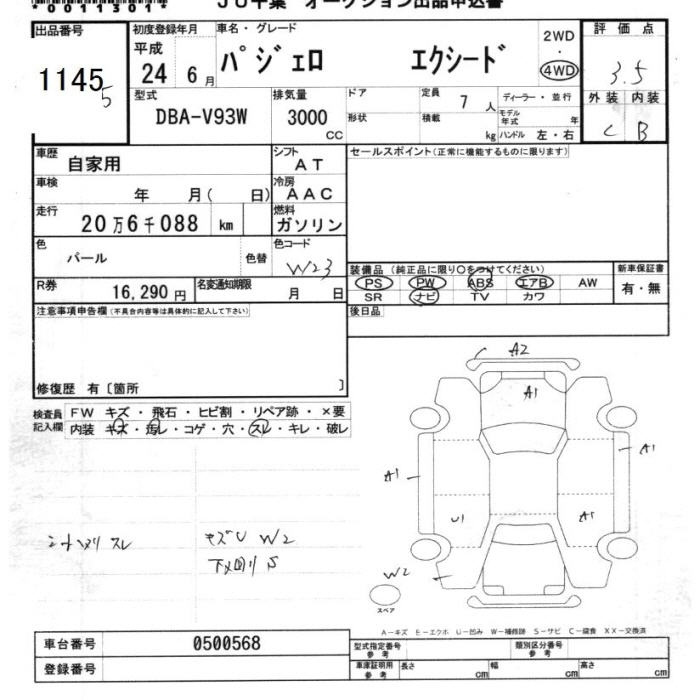 *0011301*
JU千葉 オークション出品申込書
出品番号
11455
初度登録年月
平成
24 6月
車名・グレード
パジェロ エクシード
2WD
・
4WD
評価点
3.5
外装 内装
C B
型式
DBA-V93W
排気量
3000
cc
ドア
形状
定員
7人
積載
kg
ディーラー・並行
モデル年式 年
ハンドル 左・右
車歴
自家用
シフト
AT
セールスポイント(正常に機能するものに限ります)
車検
年 月( 日)
冷房
AAC
走行
20万6千088 km
燃料
ガソリン
色
パール
色替
色コード
W23
装備品(純正品に限り○をつけてください)
PS PW ABS エアB AW
SR ナビ TV カワ
新車保証書
有・無
R券
16,290円
名変通知期限
月 日
後日品
注意事項申告欄(不具合内容等は具体的に記入して下さい)
修復歴 有〔箇所 〕
検査員
記入欄
FW キズ・飛石・ヒビ割・リペア跡・×要
内装 キズ・汚レ・コゲ・穴・スレ・キレ・破レ
A2
A1
A1
A1
U1
A1
W2
スペア
スレ
キズU W2
下メ回リ S
A-キズ E-エクボ U-凹み W-補修跡 S-サビ C-腐食 XX-交換済
車台番号
0500568
登録番号
型式指定番号
参考
類別区分番号
参考
車庫証明用
参考
長さ cm
幅 cm
高さ cm